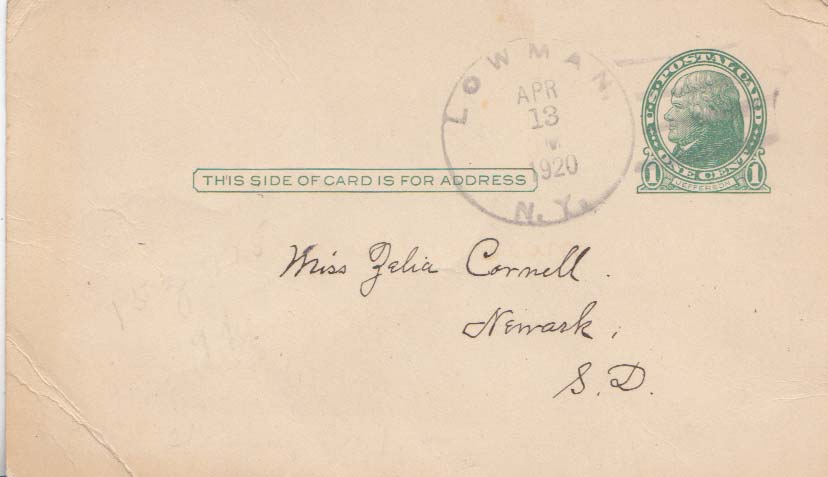 LOWMAN,
APR
13
1920
N.Y.
U.S. POSTAL CARD
ONE CENT
1 JEFFERSON 1
THIS SIDE OF CARD IS FOR ADDRESS
Miss Zelia Cornell.
Newark,
S.D.